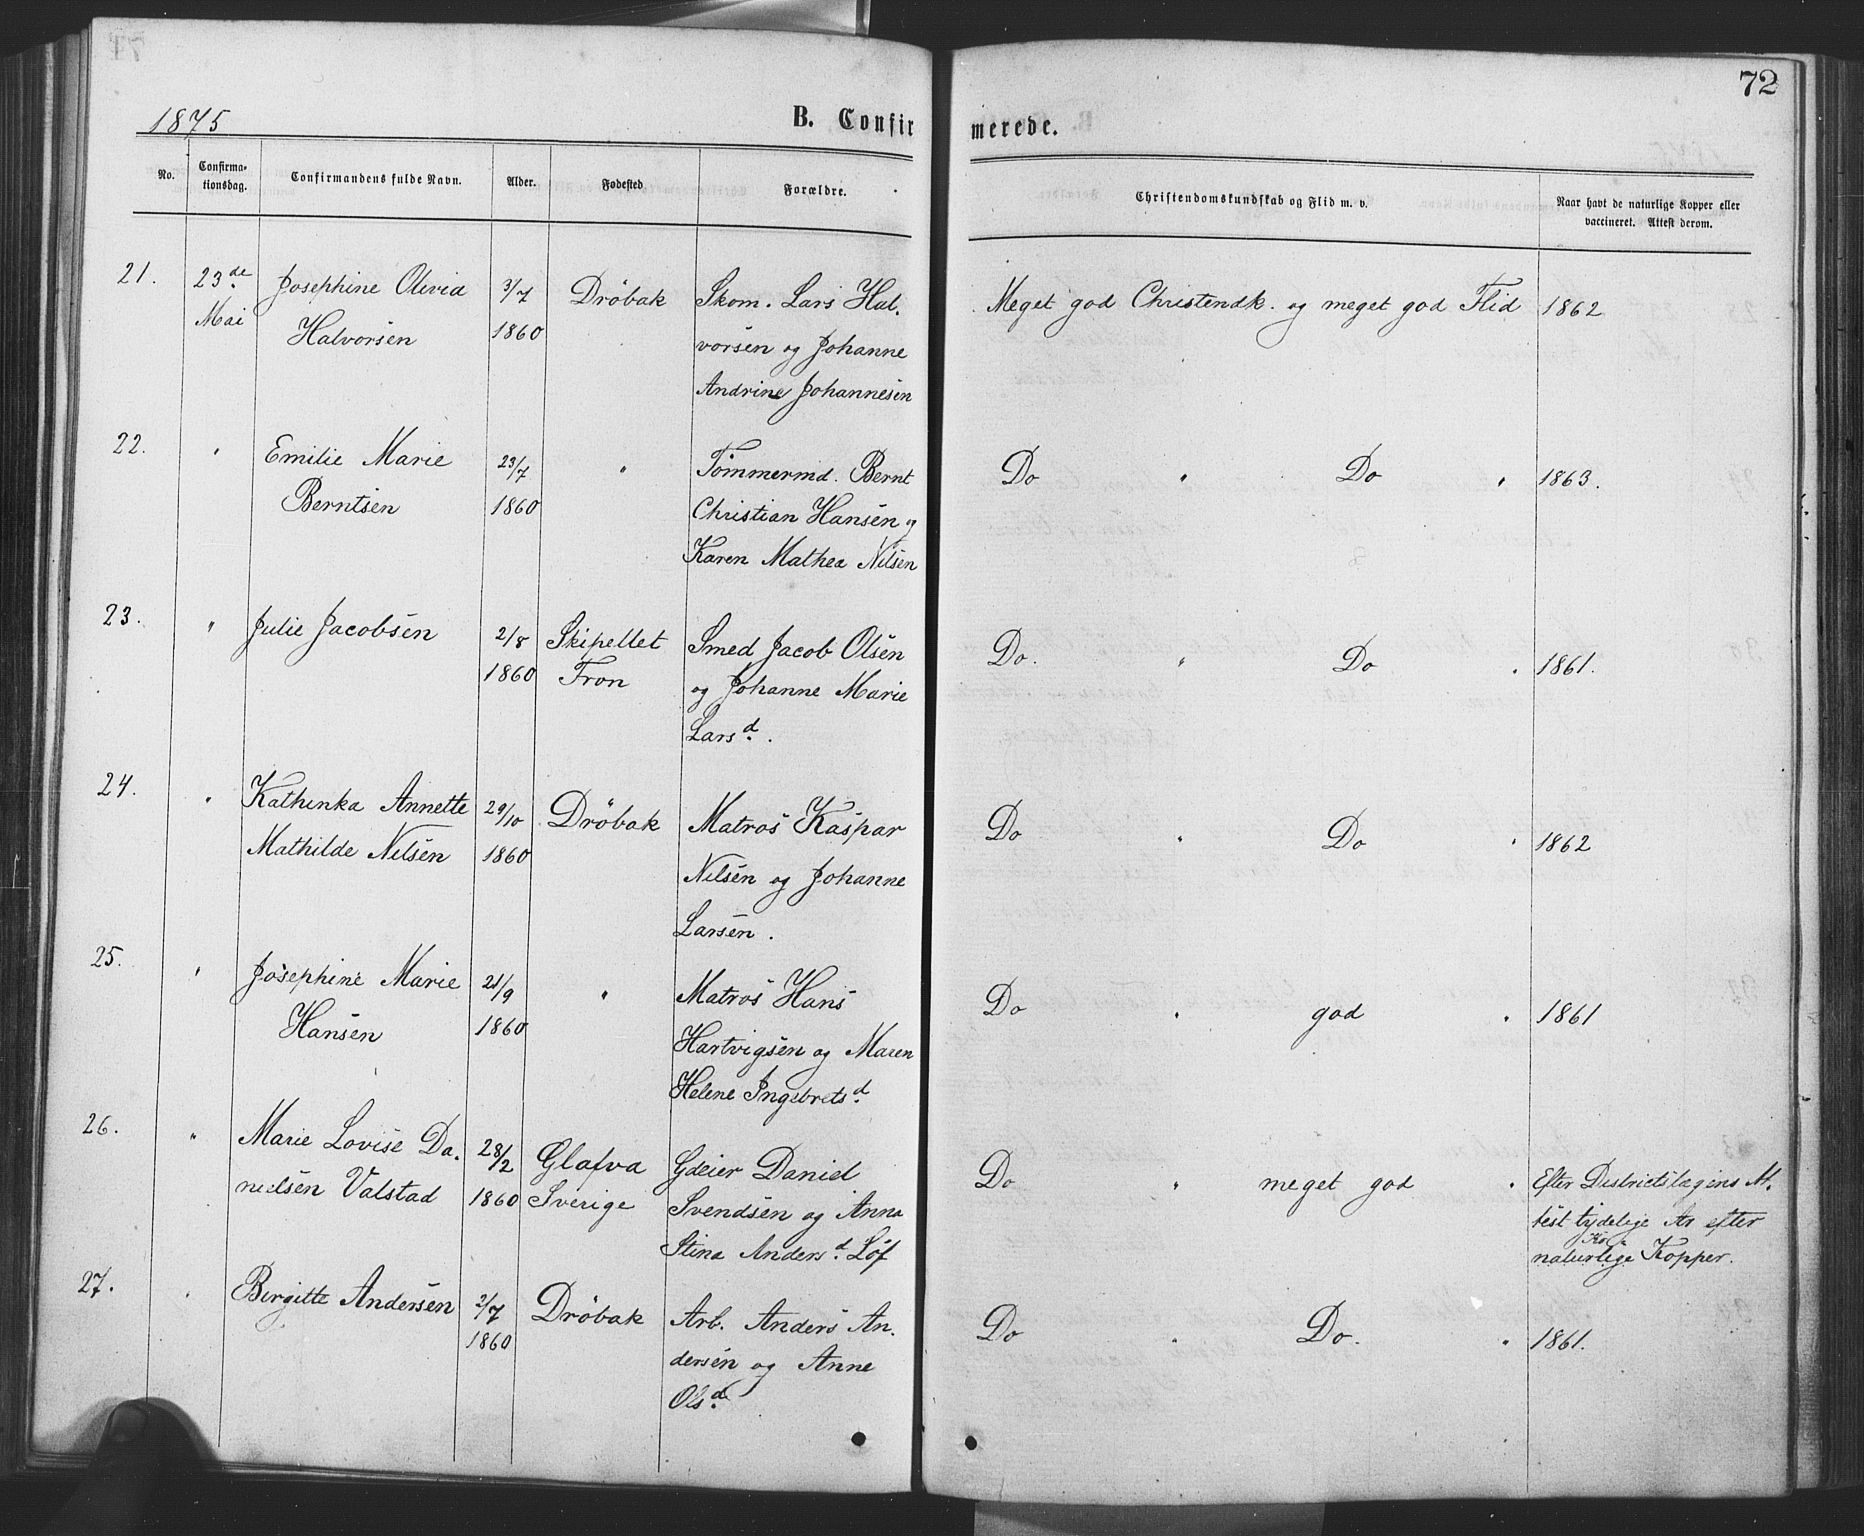 72
1875 B. Confirmerede.
No. Confirmationsdag. Confirmandens fulde Navn. Alder. Fødested Forældre. Christendomskundskab og Flid m. v. Naar havt de naturlige Kopper eller vaccineret. Attest derom.
21. 23de Josephine Olivia 3/7 Dröbak Skom. Lars Hal- Meget god Christendk. og meget god Flid 1862
Mai Halvorsen 1860 vorsen og Johanne
Andrine Johannesen
22. " Emilie Marie 23/7 " Tömmermd. Bernt Do " Do " 1863.
Berntsen 1860 Christian Hansen og
Karen Mathea Nilsen
23. " Julie Jacobsen 2/8 Skipellet Smed Jacob Olsen Do. " Do " 1861.
1860 Fron og Johanne Marie
Larsd.
24. " Kathinka Annette 29/10 Dröbak Matros Kaspar Do " Do " 1862
Mathilde Nilsen 1860 Nilsen og Johanne
Larsen.
25. " Josephine Marie 21/9 " Matros Hans Do " god " 1861
Hansen 1860 Hartvigsen og Maren
Helene Ingebretsd.
26. " Marie Lovise Da- 28/2 Glafva Gdeier Daniel Do " meget god " Efter Districtslægens At-
nielsen Valstad 1860 Sverige Svendsen og Anna test tydelige Ar efter
Stina Andersd. Löf naturlige Kopper.
27. " Birgitte Andersen 2/7 Dröbak Arb. Anders An- Do " Do. " 1861.
1860 dersen og Anne
Olsd.